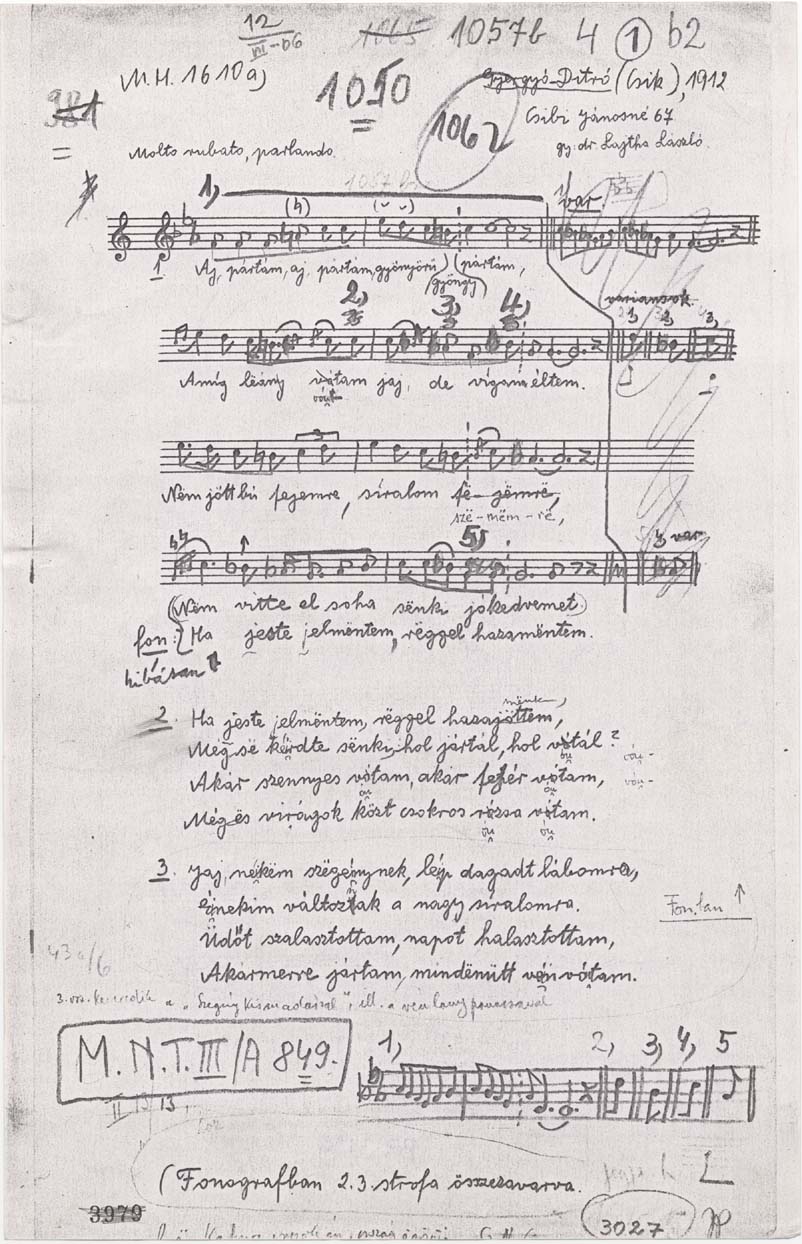 12
III-b6
1065 1057b 4 1 b2
M.H. 1610a) 1050 Gyergyó-Ditró (Csik), 1912
981 1062 Csibi Jánosné 67
Molto rubato, parlando. gy: dr Lajtha László.
1057 b
1, var
1 Aj, pártám, aj, pártám, gyönyörü pártám,
(gyöngy)
2, 3, 4, variánsok
2, 3, 4,
Amíg lëány vótam jaj, de vígam éltem.
3
Nëm jött bú fejemre, síralom fë-jëmrë,
szë-mëm-rë,
5, 5, var
(Nëm vitte el soha sënki jókedvemet)
fon: Ha jeste jelmëntem, rëggel hazamëntem.
hibásan
mënk,
2. Ha jeste jelmëntem, rëggel hazajöttem,
Még së kérdte sënki, hol jártál, hol vótál?
Akár szennyes vótam, akár fehér vótam,
Még ës virágok közt csokros rózsa vótam.
3. Jaj, nékëm szëgénynek, lép dagadt lábomra,
Énekim változtak a nagy síralomra.
Fon.ban ↑
Üdőt szalasztottam, napot halasztottam,
Akármerre jártam, mindënütt vén vótam.
43a/6
M.N.T. III/A 849.
1, 2, 3, 4, 5
(Fonografban 2.3. strofa összezavarva.
3979 3027